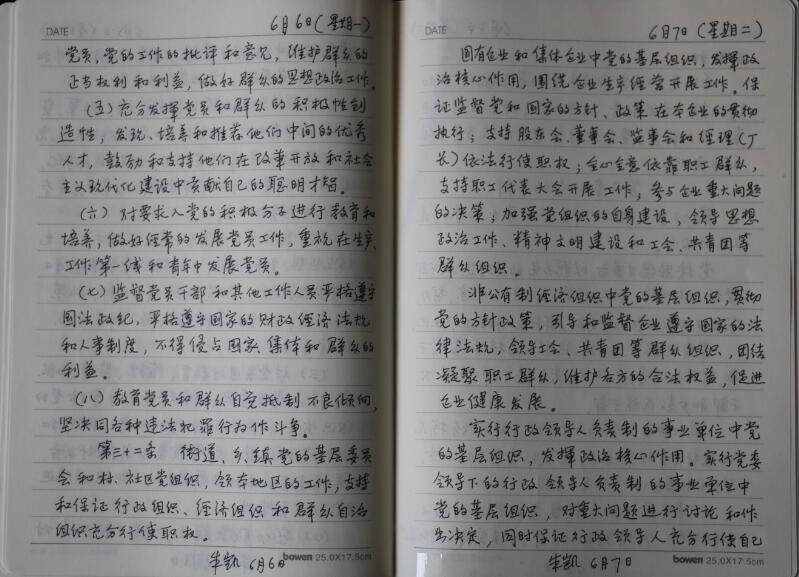 DATE 6月6日(星期一)
党员,党的工作的批评和意见,维护群众的
正当权利和利益,做好群众的思想政治工作。
(五)充分发挥党员和群众的积极性创
造性,发现、培养和推荐他们中间的优秀
人才,鼓励和支持他们在改革开放和社会
主义现代化建设中贡献自己的聪明才智。
(六)对要求入党的积极分子进行教育和
培养,做好经常的发展党员工作,重视在生产、
工作第一线和青年中发展党员。
(七)监督党员干部和其他工作人员严格遵守
国法政纪,严格遵守国家的财政经济法规
和人事制度,不得侵占国家、集体和群众的
利益。
(八)教育党员和群众自觉抵制不良倾向,
坚决同各种违法犯罪行为作斗争。
第三十二条 街道、乡、镇党的基层委员
会和村、社区党组织,领本地区的工作,支持
和保证行政组织、经济组织和群众自治
组织充分行使职权。
朱凯 6月6日
bowen 25.0X17.5cm
DATE 6月7日(星期二)
国有企业和集体企业中党的基层组织,发挥政
治核心作用,围绕企业生产经营开展工作。保
证监督党和国家的方针、政策在本企业的贯彻
执行;支持股东会、董事会、监事会和经理(厂
长)依法行使职权;全心全意依靠职工群众,
支持职工代表大会开展工作,参与企业重大问题
的决策;加强党组织的自身建设,领导思想
政治工作、精神文明建设和工会、共青团等
群众组织。
非公有制经济组织中党的基层组织,贯彻
党的方针政策,引导和监督企业遵守国家的法
律法规,领导工会、共青团等群众组织,团结
凝聚职工群众,维护各方的合法权益,促进
企业健康发展。
实行行政领导人负责制的事业单位中党
的基层组织,发挥政治核心作用。实行党委
领导下的行政领导人负责制的事业单位中
党的基层组织,对重大问题进行讨论和作
出决定,同时保证行政领导人充分行使自己
朱凯 6月7日
bowen 25.0X17.5cm